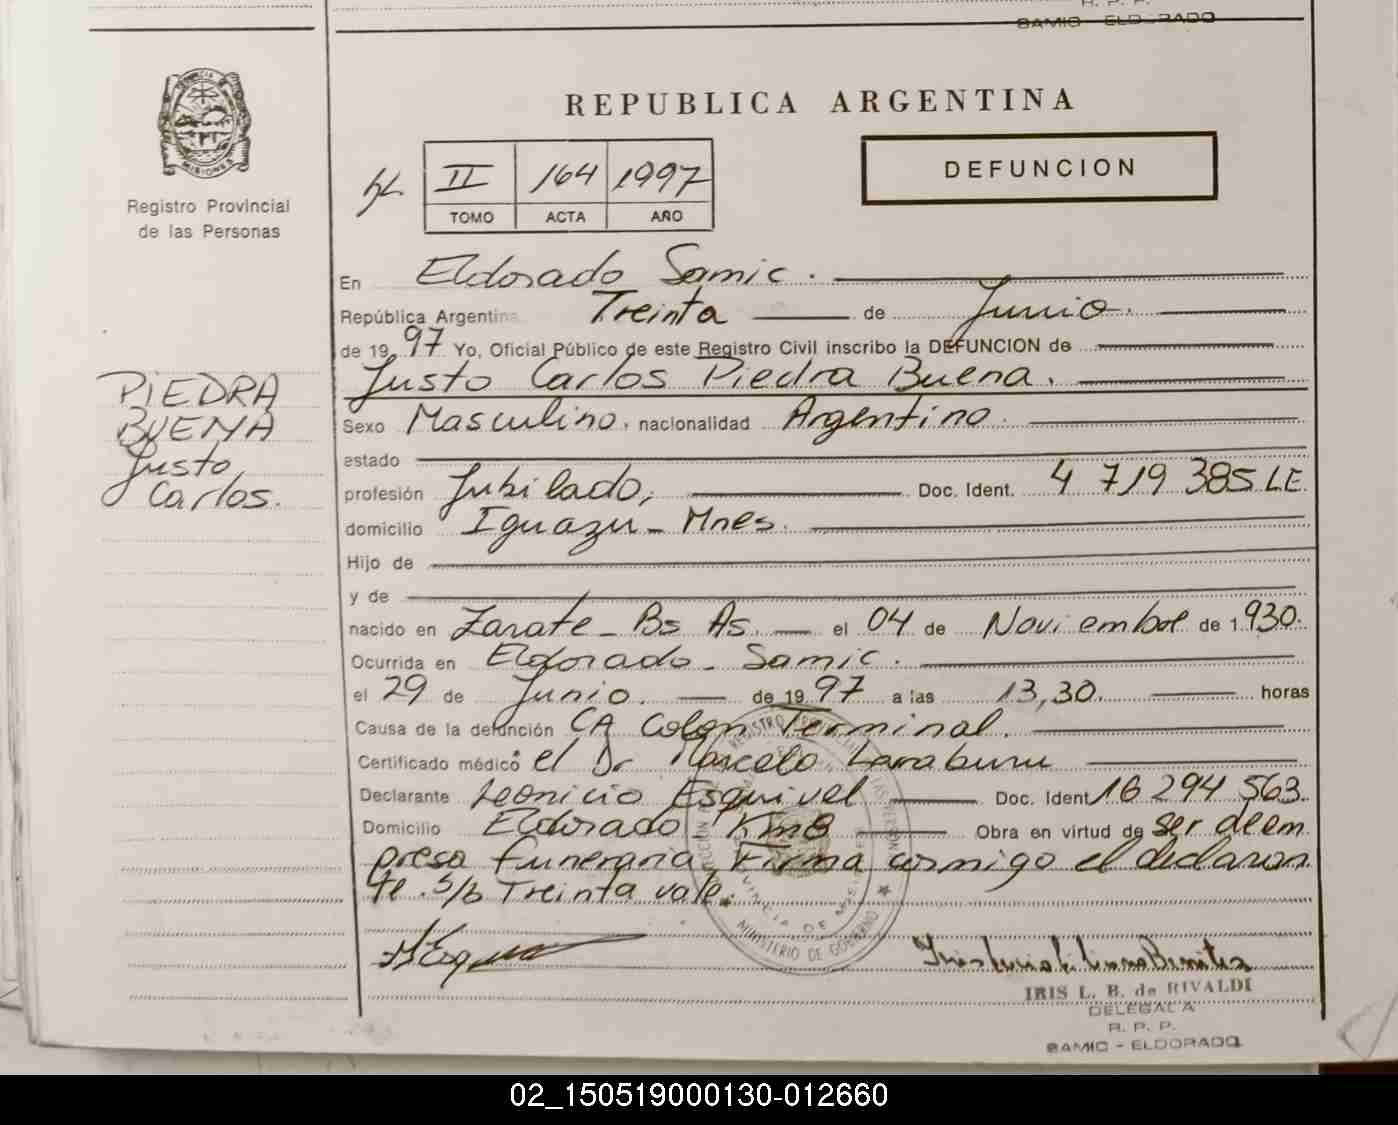 R. P. P.
SAMIC - ELDORADO
PROVINCIA DE
MISIONES
Registro Provincial
de las Personas
REPUBLICA ARGENTINA
II 164 1997
TOMO ACTA AÑO
DEFUNCION
En Eldorado Samic.
República Argentina Treinta de Junio.
de 1997 Yo, Oficial Público de este Registro Civil inscribo la DEFUNCION de
Justo Carlos Piedra Buena.
PIEDRA
BUENA
Justo,
Carlos.
Sexo Masculino, nacionalidad Argentino.
estado
profesión Jubilado, Doc. Ident. 4 719 385 LE
domicilio Iguazu - Mnes.
Hijo de
y de
nacido en Zarate - Bs As. el 04 de Noviembre de 1.930.
Ocurrida en Eldorado - Samic.
el 29 de Junio. de 1997 a las 13,30. horas
Causa de la defunción CA Colon Terminal.
Certificado médico: el Dr Marcelo Laraburu
Declarante Leonicio Esquivel Doc. Ident 16 294 563.
Domicilio Eldorado - Km8 Obra en virtud de ser de em
presa funeraria Firma conmigo el declaran
te. S/B Treinta vale.
MINISTERIO DE GOBIERNO
PROVINCIA DE MISIONES
IRIS L. B. de RIVALDI
DELEGADA
R. P. P.
SAMIC - ELDORADO
02_150519000130-012660